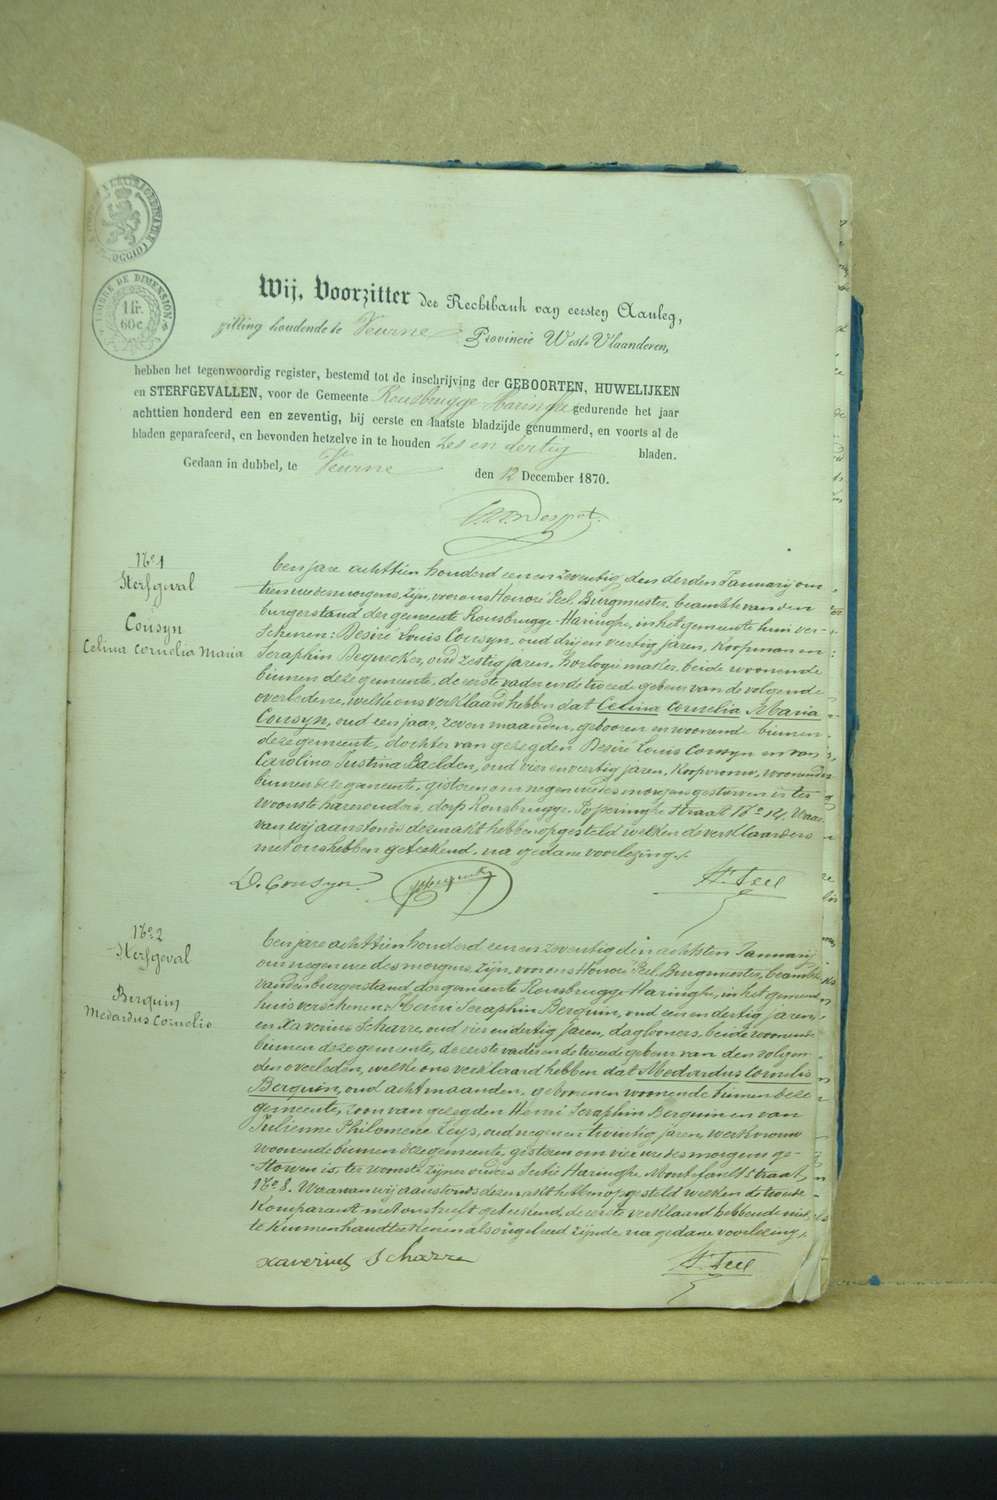 TIMBRE DE DIMENSION
1 fr.
60 c.
Wij, Voorzitter der Rechtbank van eersten Aanleg,
zitting houdende te Veurne Provincie West-Vlaanderen,
hebben het tegenwoordig register, bestemd tot de inschrijving der GEBOORTEN, HUWELIJKEN
en STERFGEVALLEN, voor de Gemeente Rousbrugge-Haringhe gedurende het jaar
achttien honderd een en zeventig, bij eerste en laatste bladzijde genummerd, en voorts al de
bladen geparafeerd, en bevonden hetzelve in te houden Zes en dertig bladen.
Gedaan in dubbel, te Veurne den 12 December 1870.
No 1
Sterfgeval
Cousyn
Celina Cornelia Maria
Een jare achttien honderd een en zeventig, den derden Januarij om
tien ure des morgens, zijn, voor ons Honoré Feel, Burgmeester, beambte van den
burgerstand der gemeente Rousbrugge-Haringhe, in het gemeente huis ver-
schenen: Désiré Louis Cousyn, oud drij en veertig jaren, Koopman en
Seraphin Dequecker, oud zestig jaren, Horlogie maker, beide woonende
binnen deze gemeente, de eerste vader en de tweede gebuer van de volgende
overledene, welke ons verklaard hebben dat Celina Cornelia Maria
Cousyn, oud een jaar, zeven maanden, geboren en woonende binnen
deze gemeente, dochter van gezegden Désiré Louis Cousyn en van
Carolina Justina Baelden, oud vier en veertig jaren, Koopvrouw, woonende
binnen deze gemeente, gisteren om negen ure des morgens gestorven is ter
woonste harer ouders, dorp Rousbrugge, Poperinghe Straat No 14. Waar
van wij aanstonds dezen akt hebben opgesteld welken de verklaarders
met ons hebben geteekend, na gedane voorlezing.
D. Cousyn H. Feel
No 2
Sterfgeval
Berquin
Medardus Cornelis
Een jare achttien honderd een en zeventig den achtsten Januarij
om negen ure des morgens, zijn, voor ons Honoré Feel, Burgmeester, beambte
van den burgerstand der gemeente Rousbrugge-Haringhe, in het gemeente
huis verschenen: Henri Seraphin Berquin, oud een en dertig jaren,
en Xaverius Scharre, oud vier en dertig jaren, daglooners, beide woonende
binnen deze gemeente, de eerste vader en de tweede gebuer van den volgen-
den overleden, welke ons verklaard hebben dat Medardus Cornelis
Berquin, oud acht maanden, geboren en woonende binnen deze
gemeente, zoon van gezegden Henri Seraphin Berquin en van
Julienne Philomene Zeys, oud negen en twintig jaren, werkvrouw
woonende binnen deze gemeente, gisteren om vier ure des morgens ge-
storven is, ter woonste zijner ouders Sectie Haringhe
No 8. Waarvan wij aanstonds dezen akt hebben opgesteld welken de tweede
Komparant met ons heeft geteekend, de eerste verklaard hebbende niet
te kunnen handteekenen als ongeleerd zijnde na gedane voorlezing.
xaverius Scharre H. Feel